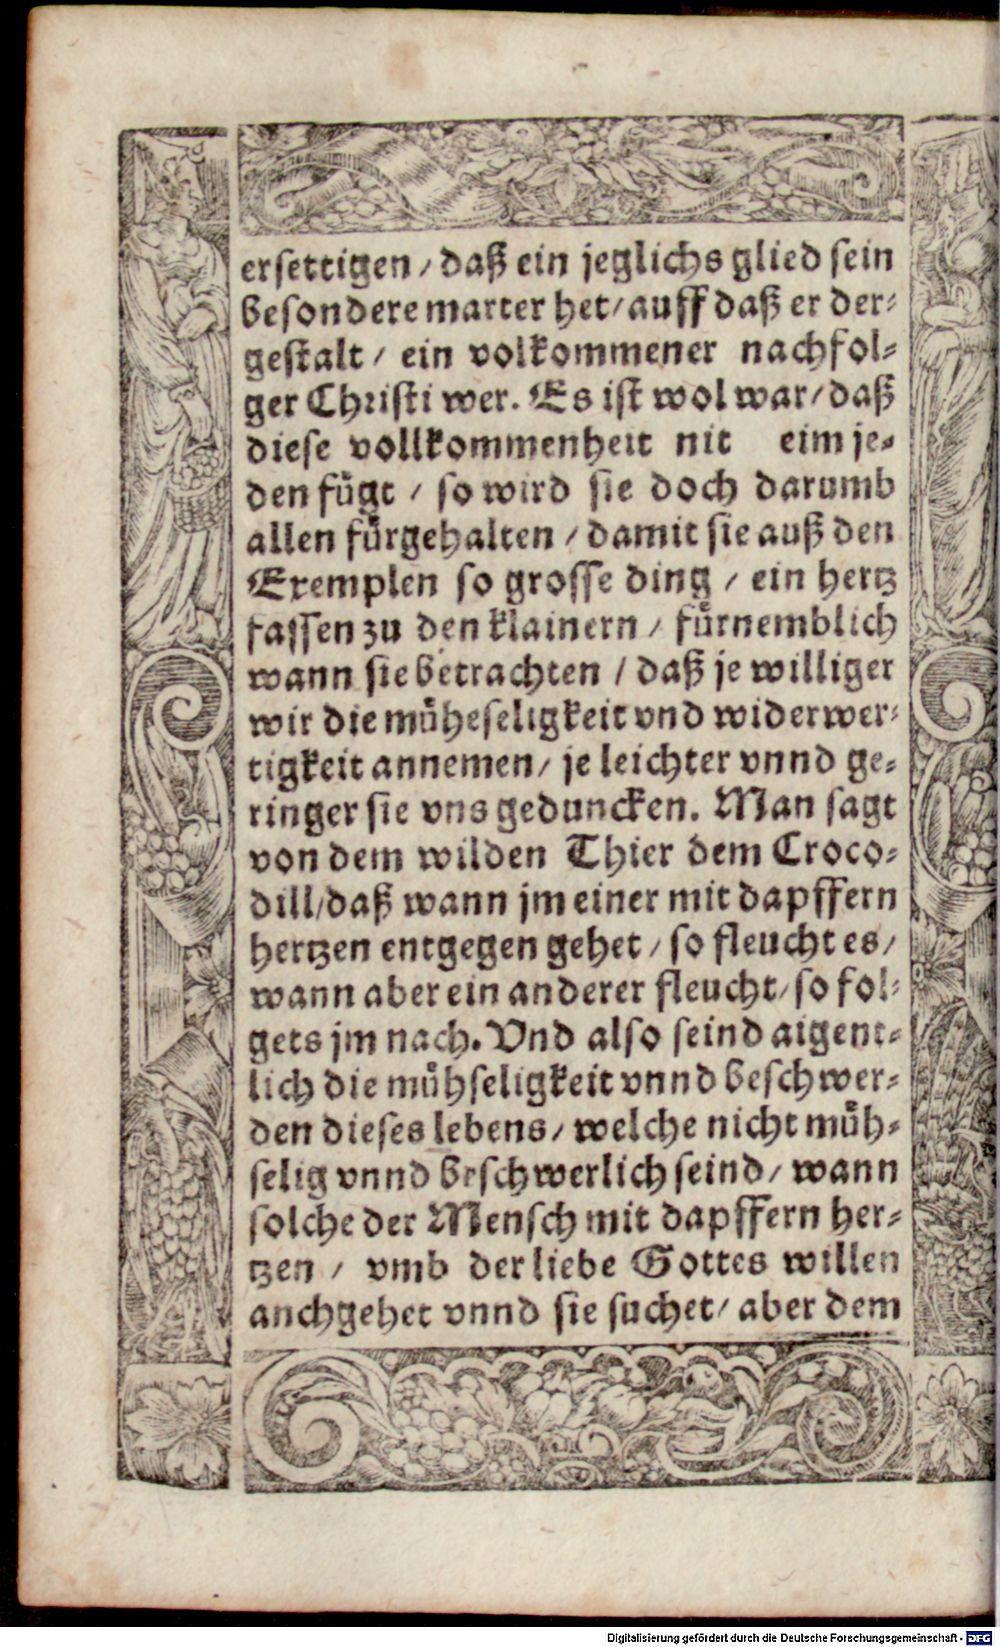 ersettigen / daß ein jeglichs glied sein
besondere marter het / auff daß er der⸗
gestalt / ein volkommener nachfol⸗
ger Christi wer. Es ist wol war / daß
diese vollkommenheit nit eim je⸗
den fügt / so wird sie doch darumb
allen fürgehalten / damit sie auß den
Exemplen so grosse ding / ein hertz
fassen zu den klainern / fürnemblich
wann sie betrachten / daß je williger
wir die müheseligkeit vnd widerwer⸗
tigkeit annemen / je leichter vnnd ge⸗
ringer sie vns geduncken. Man sagt
von dem wilden Thier dem Croco⸗
dill / daß wann jm einer mit dapffern
hertzen entgegen gehet / so fleucht es /
wann aber ein anderer fleucht / so fol⸗
gets jm nach. Vnd also seind aigent⸗
lich die mühseligkeit vnnd beschwer⸗
den dieses lebens / welche nicht müh⸗
selig vnnd beschwerlich seind / wann
solche der Mensch mit dapffern her⸗
tzen / vmb der liebe Gottes willen
anchgehet vnnd sie suchet / aber dem
Digitalisierung gefördert durch die Deutsche Forschungsgemeinschaft - DFG